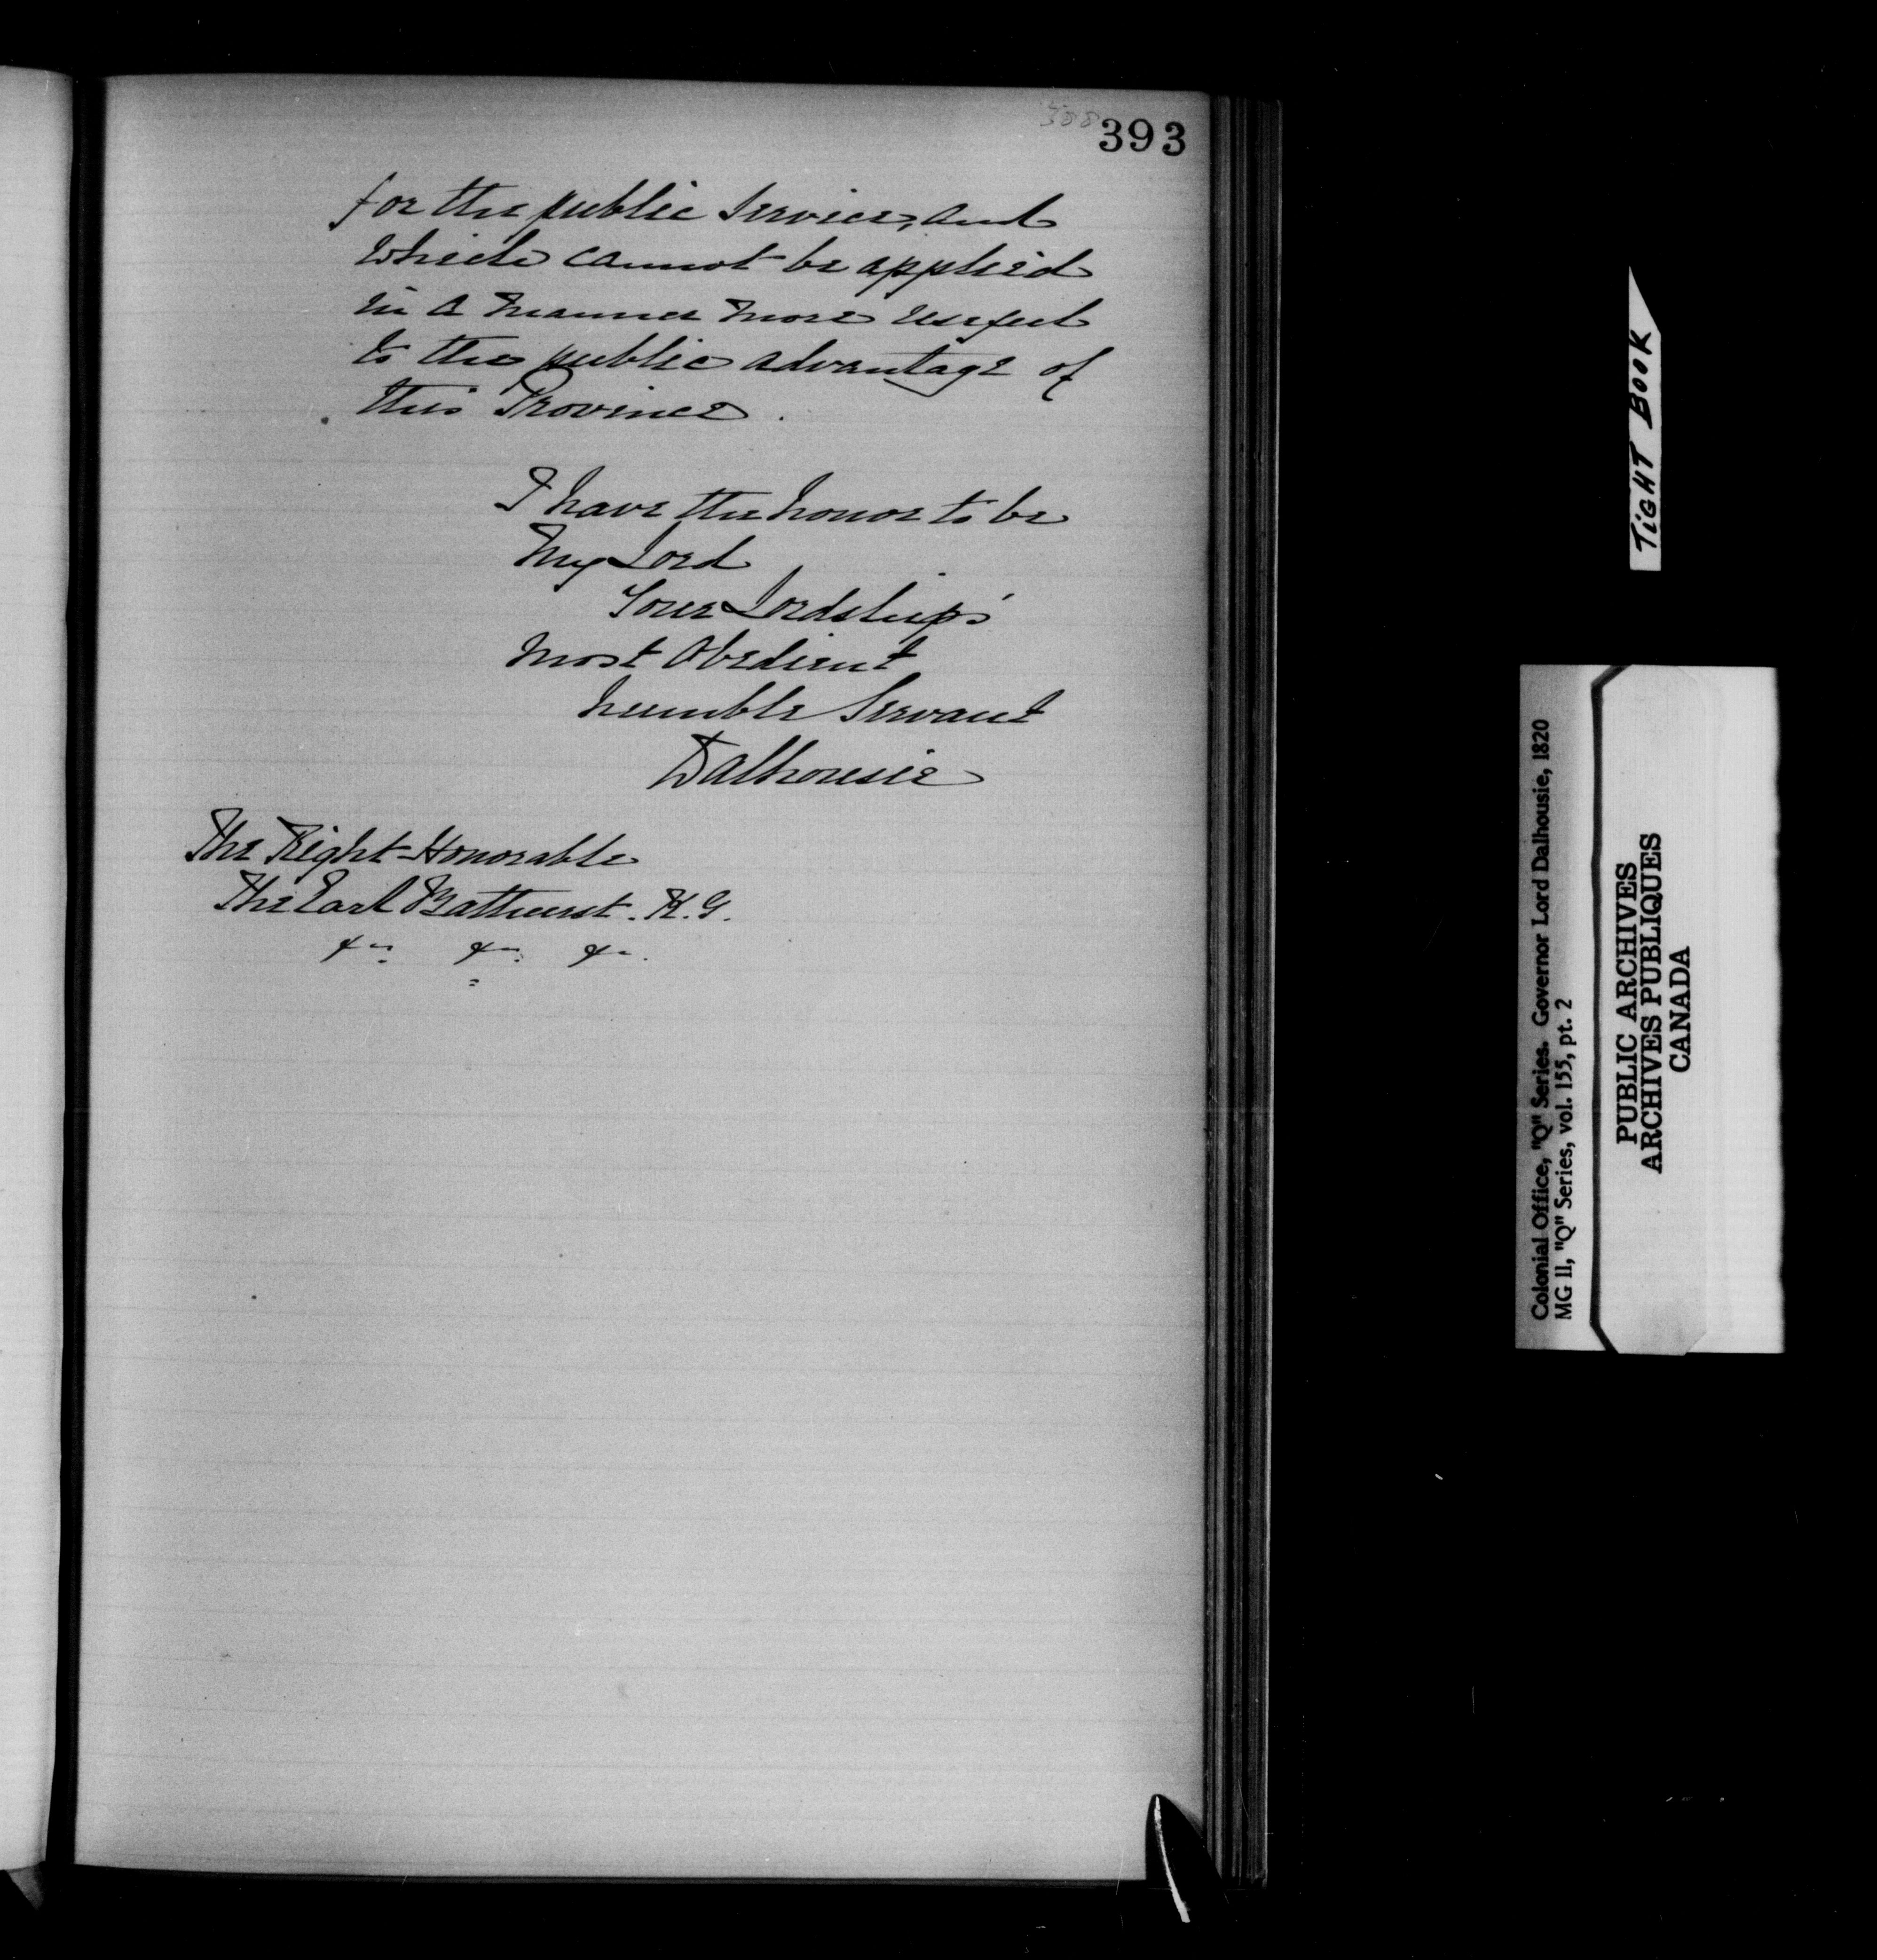 393
for the public service, and
which cannot be applied
in a manner more useful
to the public advantage of
this Province.
I have the honor to be
My Lord
Your Lordship's
Most Obedient
humble Servant
Dalhousie
The Right Honorable
The Earl Bathurst. K.G.
&c &c &c.
TiGHT BOOK
Colonial Office, "Q" Series. Governor Lord Dalhousie, 1820
MG 11, "Q" Series, vol. 155, pt. 2
PUBLIC ARCHIVES
ARCHIVES PUBLIQUES
CANADA